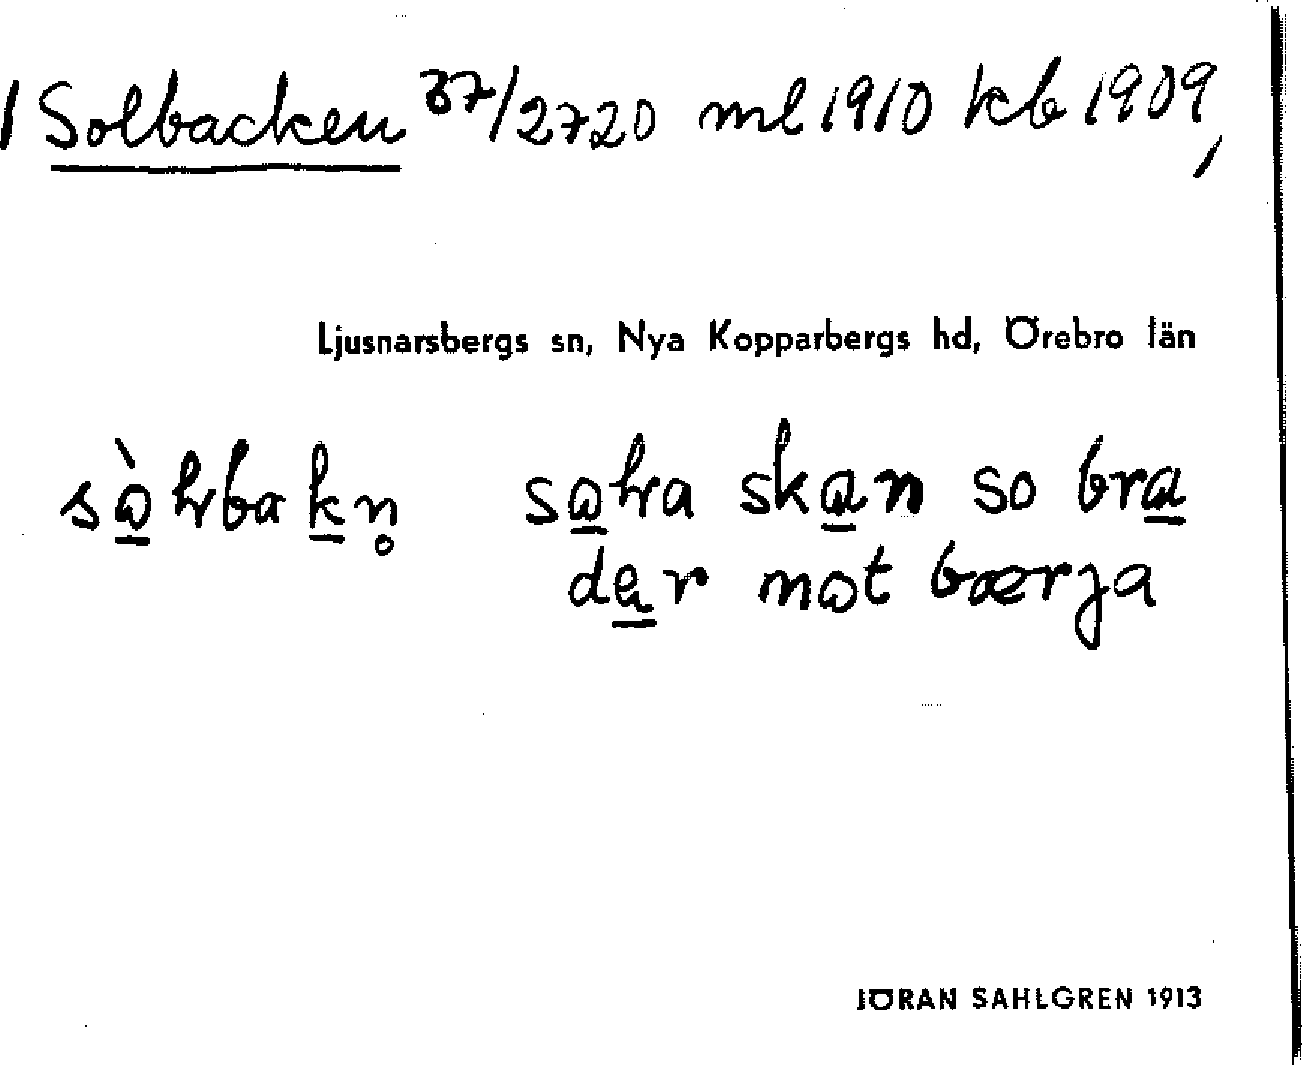 Solbacken 37/2720 ml 1910 kb 1909,
Ljusnarsbergs sn, Nya Kopparbergs hd, Örebro län
skan so bra
mot bærja
JÖRAN SAHLGREN 1913